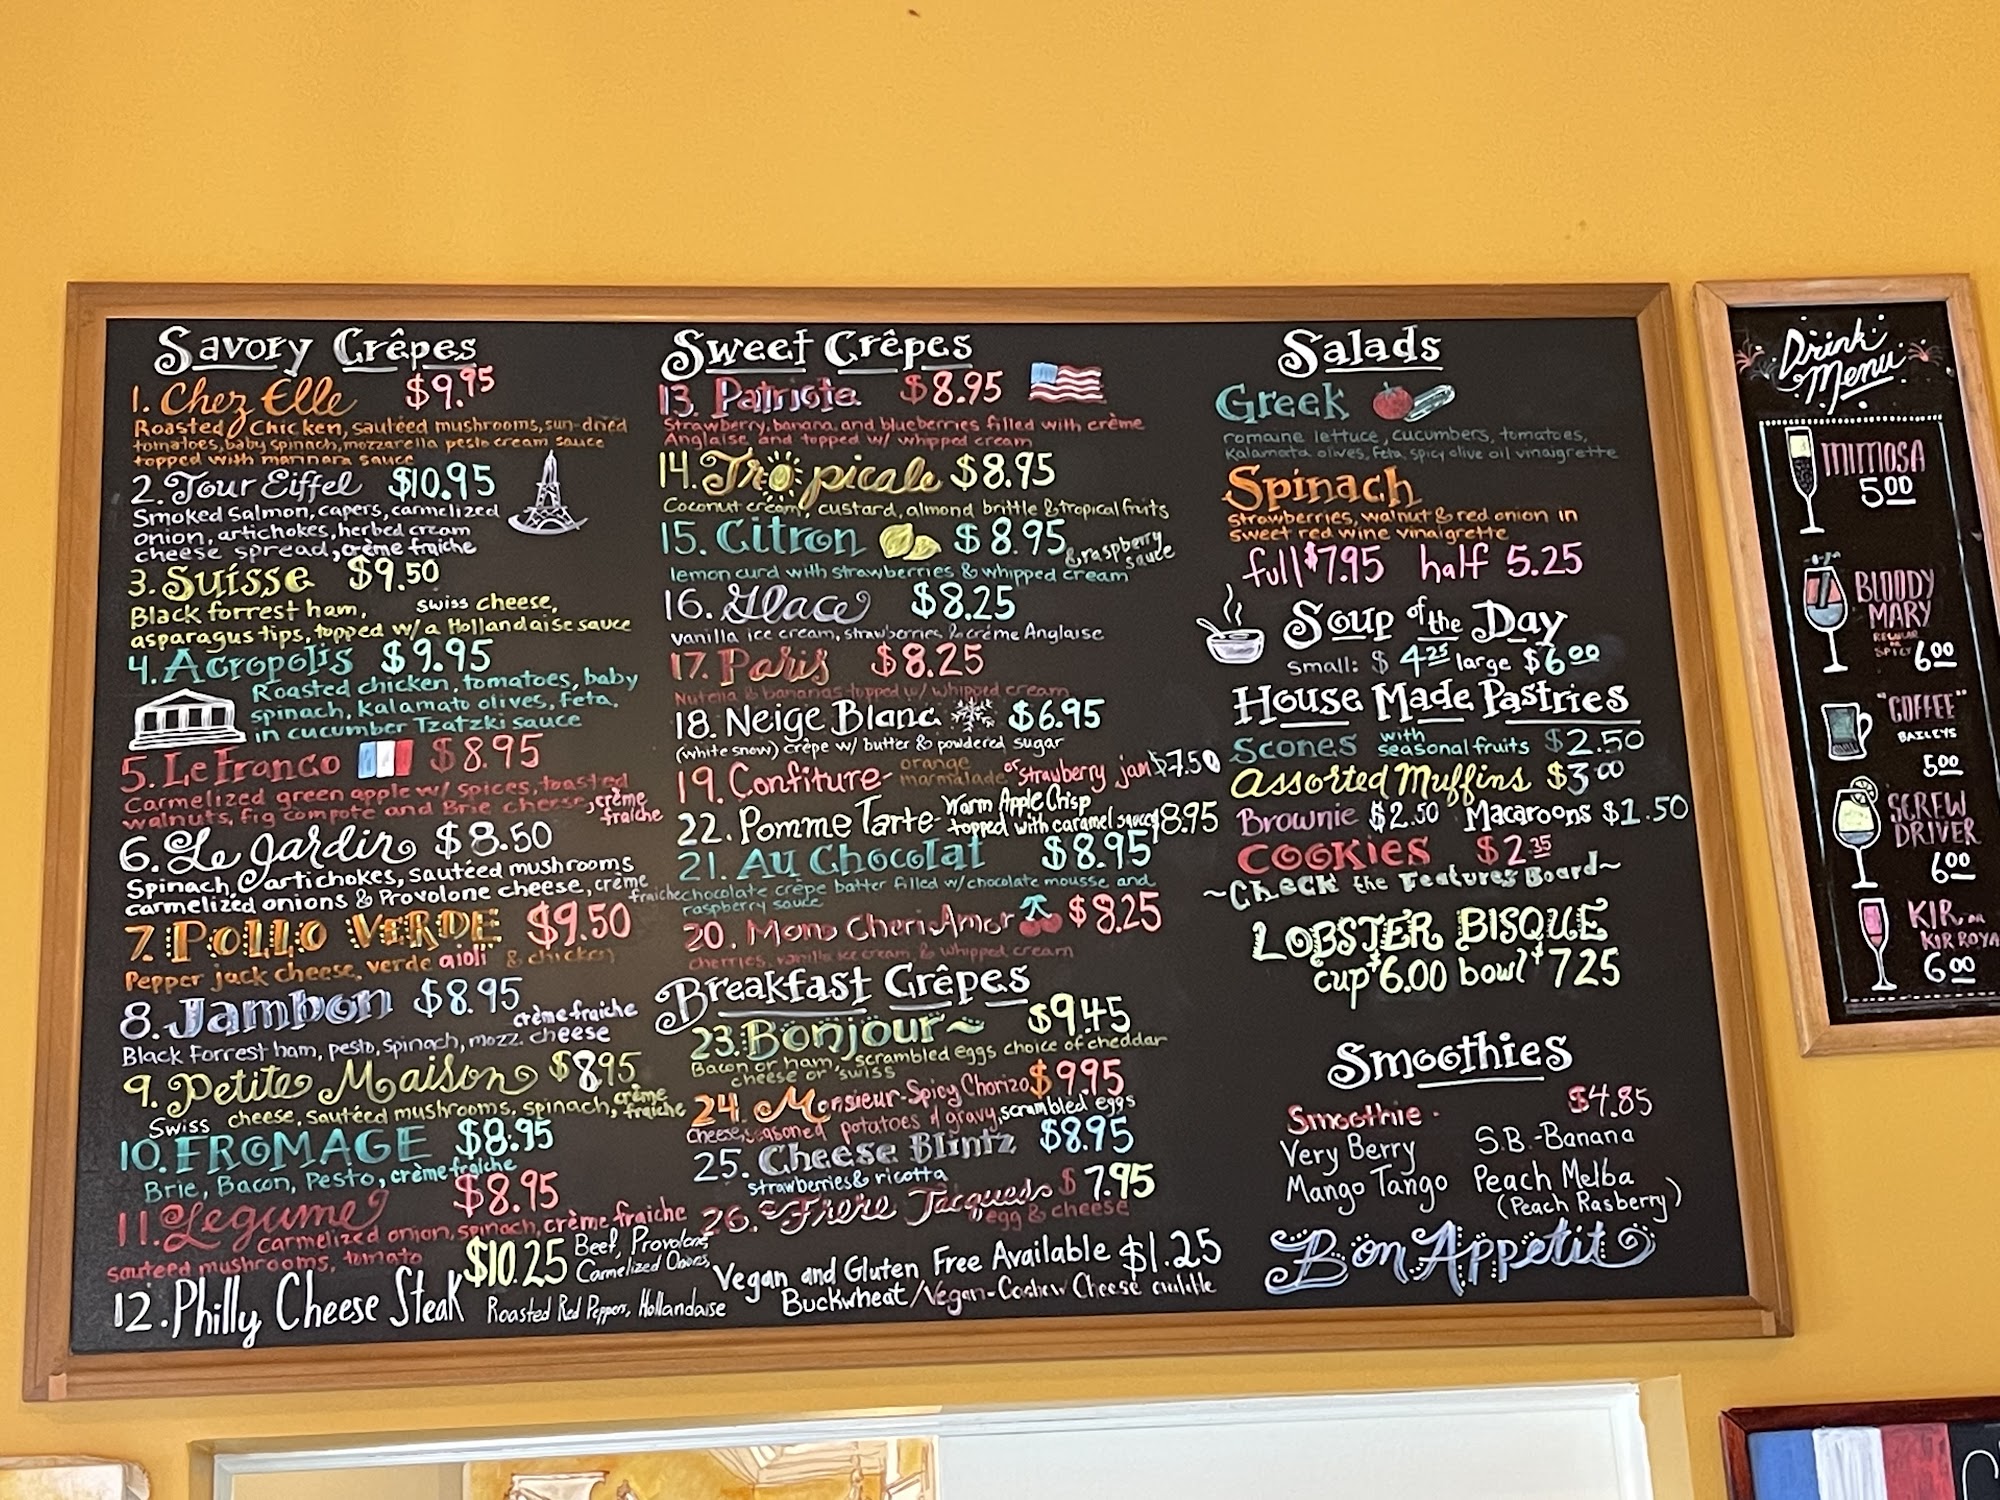 Savory Crêpes
1. Chez Elle $9.95
Roasted Chicken, sautéed mushrooms, sun-dried
tomatoes, baby spinach, mozzarella pesto cream sauce
topped with marinara sauce
2. Tour Eiffel $10.95
Smoked Salmon, capers, carmelized
onion, artichokes, herbed cream
cheese spread, crème fraiche
3. Suisse $9.50
Black forrest ham, swiss cheese,
asparagus tips, topped w/ a Hollandaise sauce
4. Acropolis $9.95
Roasted chicken, tomatoes, baby
spinach, kalamato olives, feta,
in cucumber Tzatzki sauce
5. Le Franco $8.95
Carmelized green apple w/ spices, toasted
walnuts, fig compote and Brie cheese, crème
fraiche
6. Le Jardin $8.50
Spinach, artichokes, sautéed mushrooms
carmelized onions & Provolone cheese, crème fraiche
7. POLLO VERDE $9.50
Pepper jack cheese, verde aioli & chicken
8. Jambon $8.95
crème fraiche
Black Forrest ham, pesto, spinach, mozz. cheese
9. Petite Maison $8.95
Swiss cheese, sautéed mushrooms, spinach, crème
fraiche
10. FROMAGE $8.95
Brie, Bacon, Pesto, crème fraîche
11. Legume $8.95
carmelized onion, spinach, crème fraiche
sauteed mushrooms, tomato
12. Philly Cheese Steak $10.25 Beef, Provolone,
Carmelized Onions,
Roasted Red Peppers, Hollandaise
Sweet Crêpes
13. Patriote $8.95
Strawberry, banana, and blueberries filled with crème
Anglaise and topped w/ whipped cream
14. Tropicale $8.95
Coconut cream, custard, almond brittle & tropical fruits
15. Citron $8.95 & raspberry
sauce
lemon curd with strawberries & whipped cream
16. Glace $8.25
vanilla ice cream, strawberries & crème Anglaise
17. Paris $8.25
Nutella & bananas topped w/ whipped cream
18. Neige Blanc $6.95
(white snow) crêpe w/ butter & powdered sugar
19. Confiture- orange
marmalade or strawberry jam $7.50
22. Pomme Tarte- Warm Apple Crisp
topped with caramel sauce $8.95
21. Au Chocolat $8.95
chocolate crêpe batter filled w/ chocolate mousse and
raspberry sauce
20. Mono Cheri Amor $8.25
cherries, vanilla ice cream, & whipped cream
Breakfast Crêpes
23. Bonjour~ $9.45
Bacon or ham, scrambled eggs choice of cheddar
cheese or swiss
24. Monsieur-Spicy Chorizo $9.95
Cheese, seasoned potatoes & gravy, scrambled eggs
25. Cheese Blintz $8.95
strawberries & ricotta
26. Frere Jacques $7.95
egg & cheese
Vegan and Gluten Free Available $1.25
Buckwheat/Vegan-Cashew Cheese
Salads
Greek
romaine lettuce, cucumbers, tomatoes,
Kalamata olives, feta, spicy olive oil vinaigrette
Spinach
strawberries, walnut & red onion in
sweet red wine vinaigrette
full $7.95 half 5.25
Soup of the Day
small: $4.25 large $6.00
House Made Pastries
Scones with
seasonal fruits $2.50
Assorted Muffins $3.00
Brownie $2.50 Macaroons $1.50
COOKIES $2.35
~Check the Features Board~
LOBSTER BISQUE
cup $6.00 bowl $7.25
Smoothies
Smoothie - $4.85
Very Berry S.B.-Banana
Mango Tango Peach Melba
(Peach Rasberry)
Bon Appetit
Drink
Menu
MIMOSA
5.00
BLOODY
MARY
REGULAR
OR
SPICY 6.00
"COFFEE"
BAILEYS
5.00
SCREW
DRIVER
6.00
KIR OR
KIR ROYA
6.00